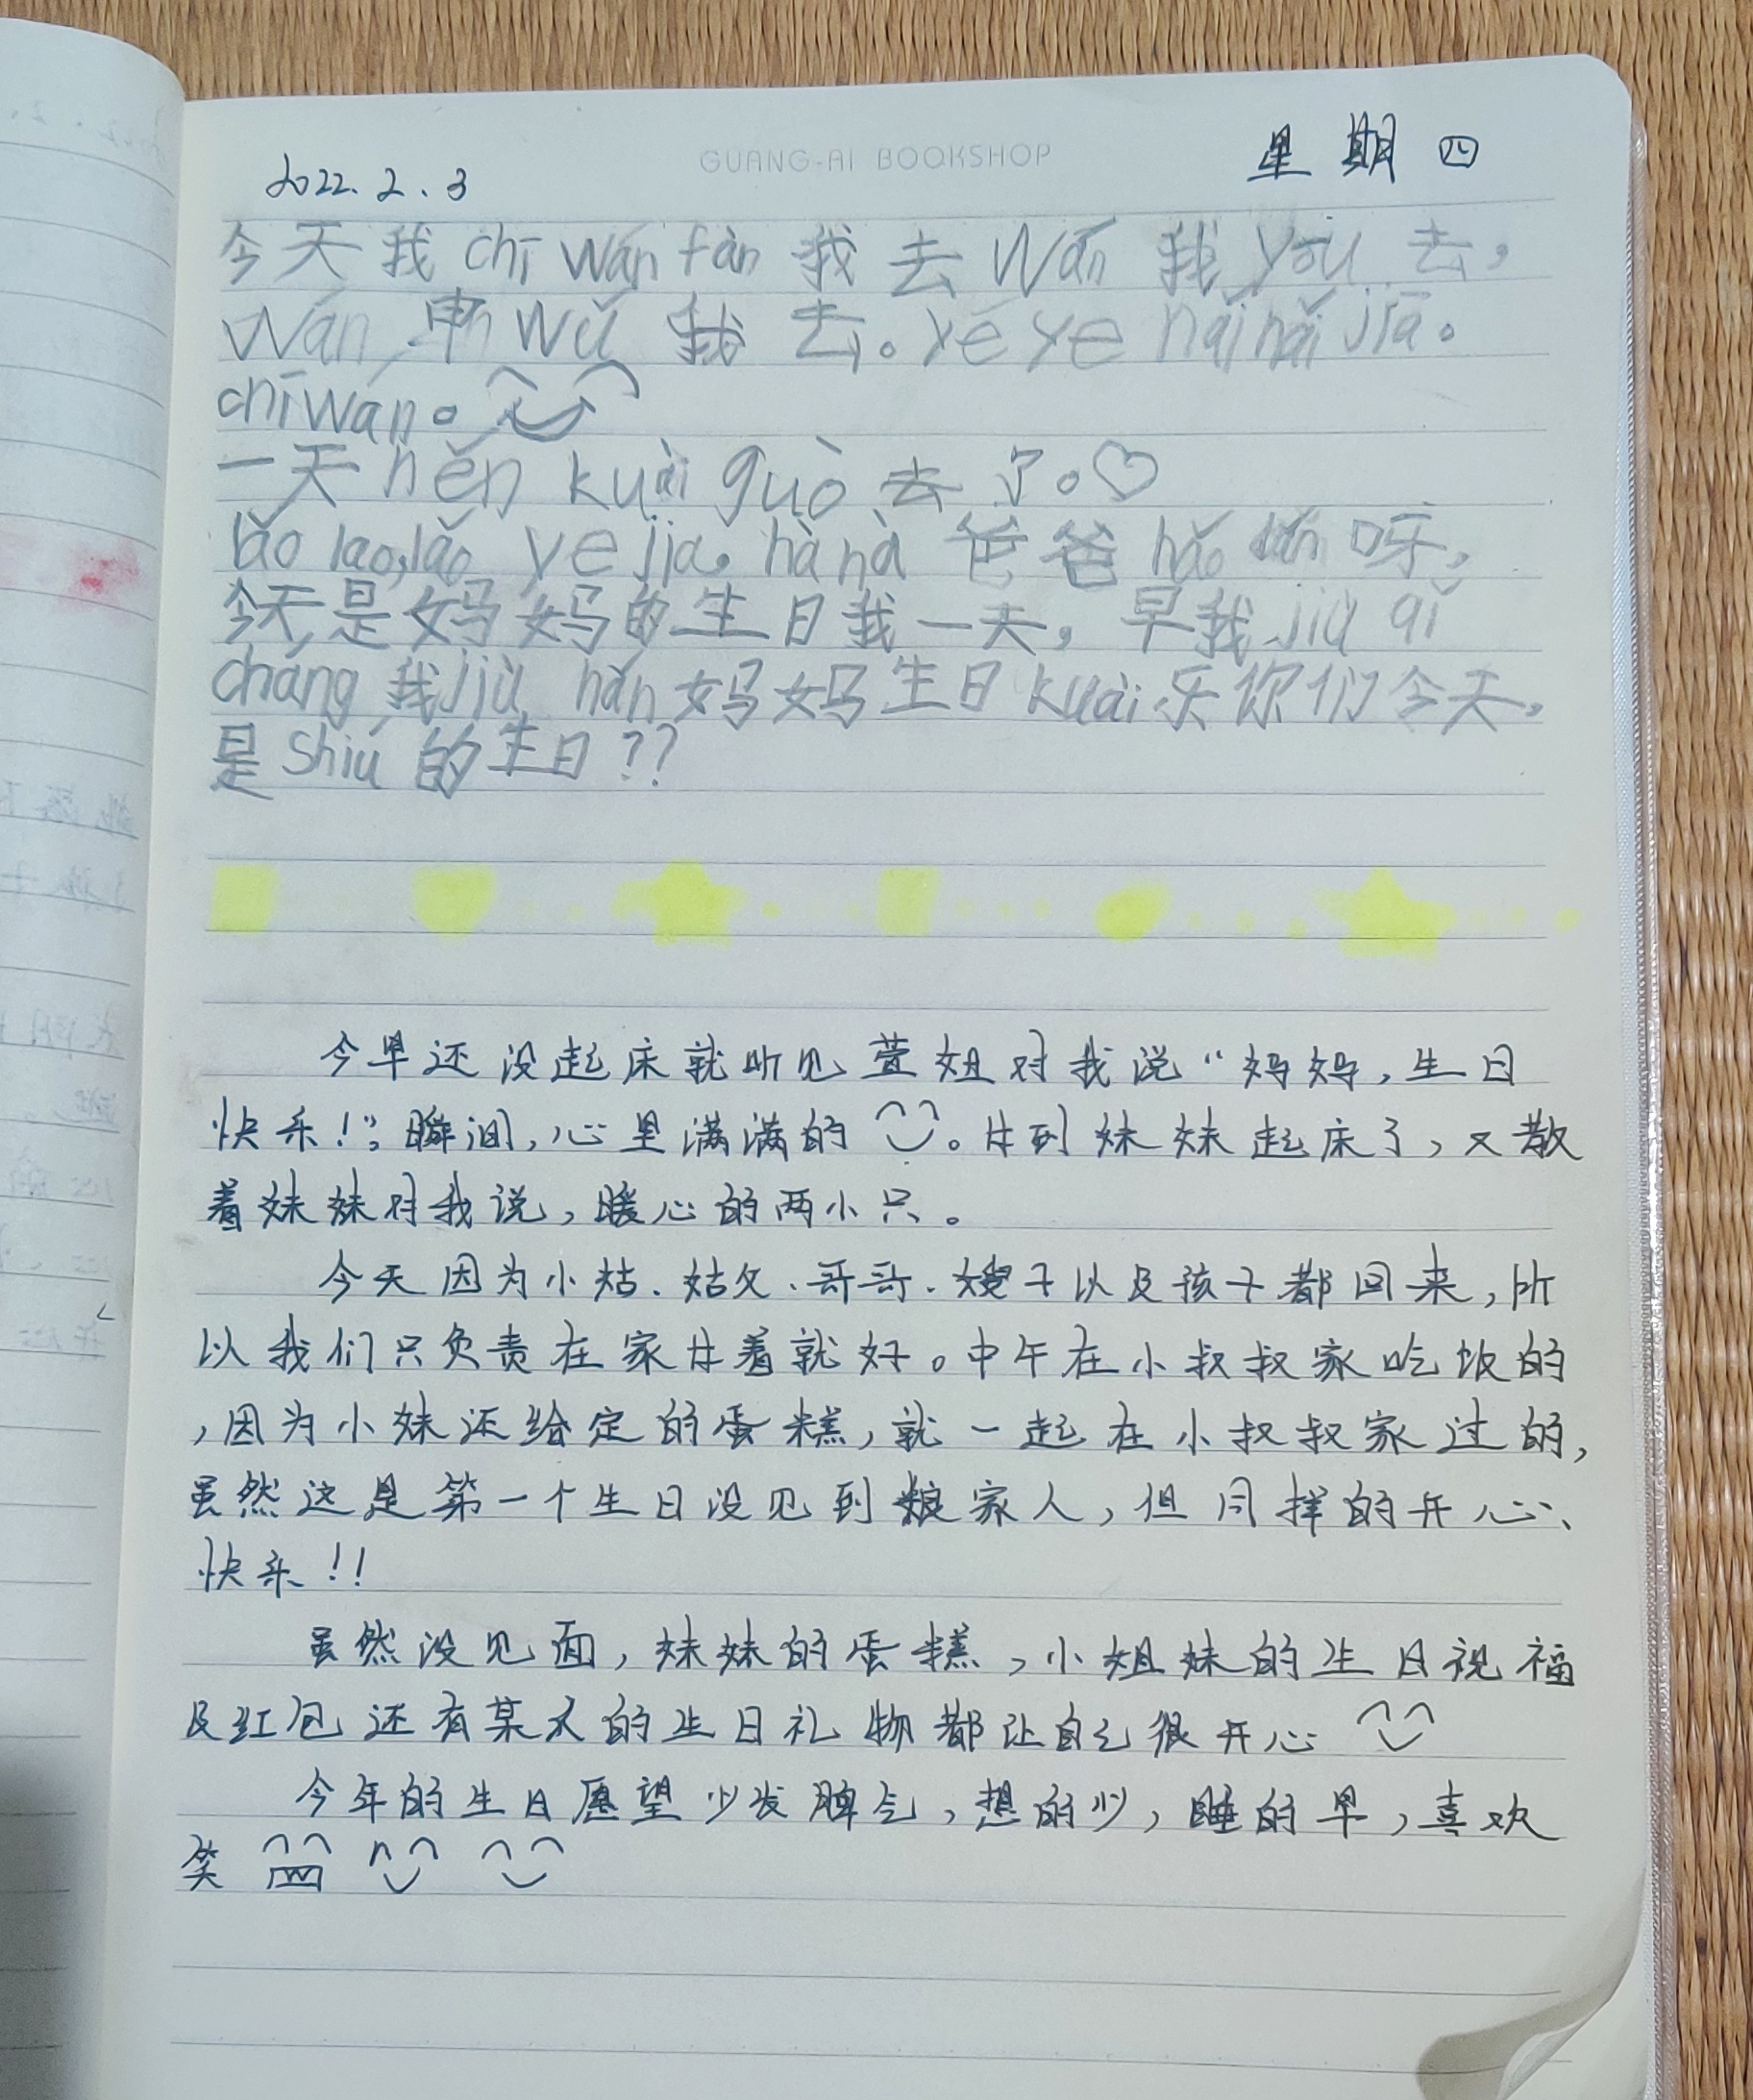 GUANG-AI BOOKSHOP
2022.2.3 星期四
今天我chī wán fàn 我去 wán 我 yòu 去,
wán, 中 wǔ 我去。yé ye nǎi nǎi jiā。
chī wán。
一天 hěn kuài guò 去了。
lǎo lao, lǎo ye jiā。hà hà 爸爸 hǎo 呀,
今天是妈妈的生日我一天,早我 jiù qǐ
cháng 我 jiù hǎn 妈妈生日 kuài 乐你们今天,
是 shiú 的生日??
今早还没起床就听见萱姐对我说“妈妈,生日
快乐!”。瞬间,心里满满的。片到妹妹起床了,又教
着妹妹对我说,暖心的两小只。
今天因为小姑、姑父、哥哥、嫂子以及孩子都回来,所
以我们只负责在家片着就好。中午在小叔叔家吃饭的
,因为小妹还给定的蛋糕,就一起在小叔叔家过的,
虽然这是第一个生日没见到娘家人,但同样的开心、
快乐!!
虽然没见面,妹妹的蛋糕,小姐妹的生日祝福
及红包还有某人的生日礼物都让自己很开心
今年的生日愿望少发脾气,想的少,睡的早,喜欢
笑